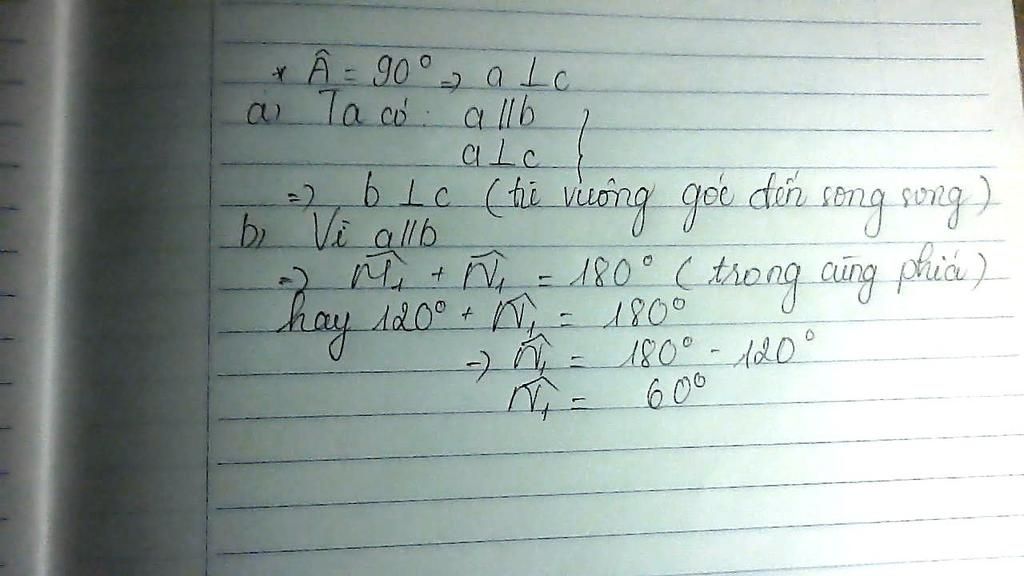 * Â = 90° => a ⊥ c
a) Ta có: a // b
a ⊥ c }
=> b ⊥ c (từ vuông góc đến song song)
b) Vì a // b
=> M̂₁ + N̂₁ = 180° (trong cùng phía)
hay 120° + N̂₁ = 180°
=> N̂₁ = 180° - 120°
N̂₁ = 60°